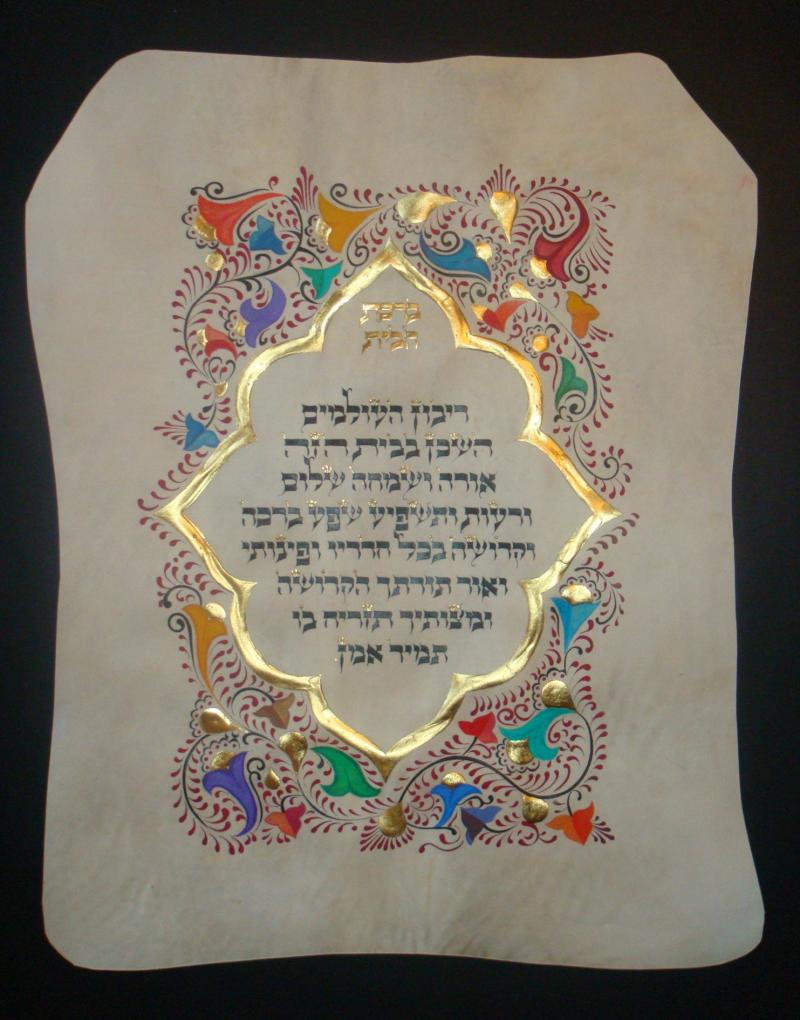 ברכת
הבית
ריבון העולמים
השכן בבית הזה
אורה ושמחה שלום
ורעות ותשפיע שפע ברכה
וקדושה בכל חדריו ופינותיו
ואור תורתך הקדושה
ומצותיך תזריח בו
תמיד אמן